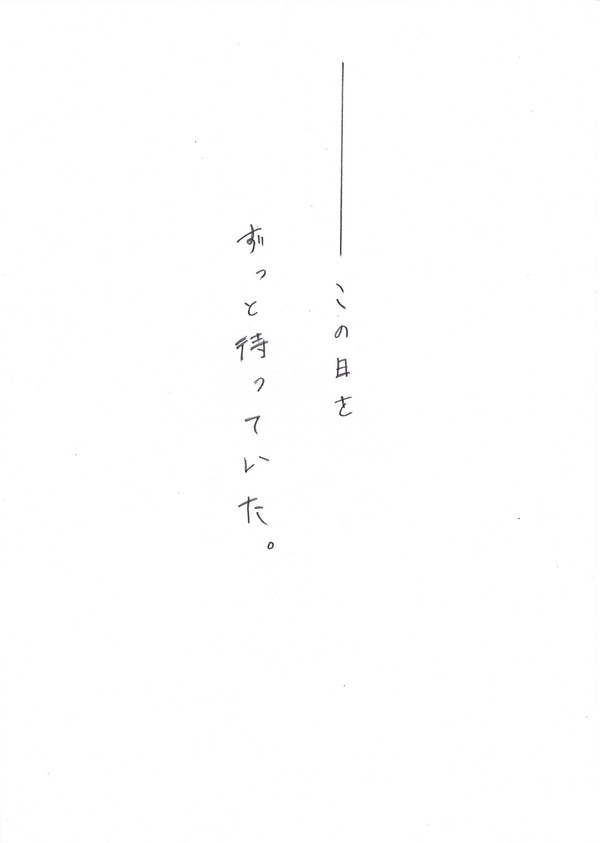 ――この日を
ずっと待っていた。